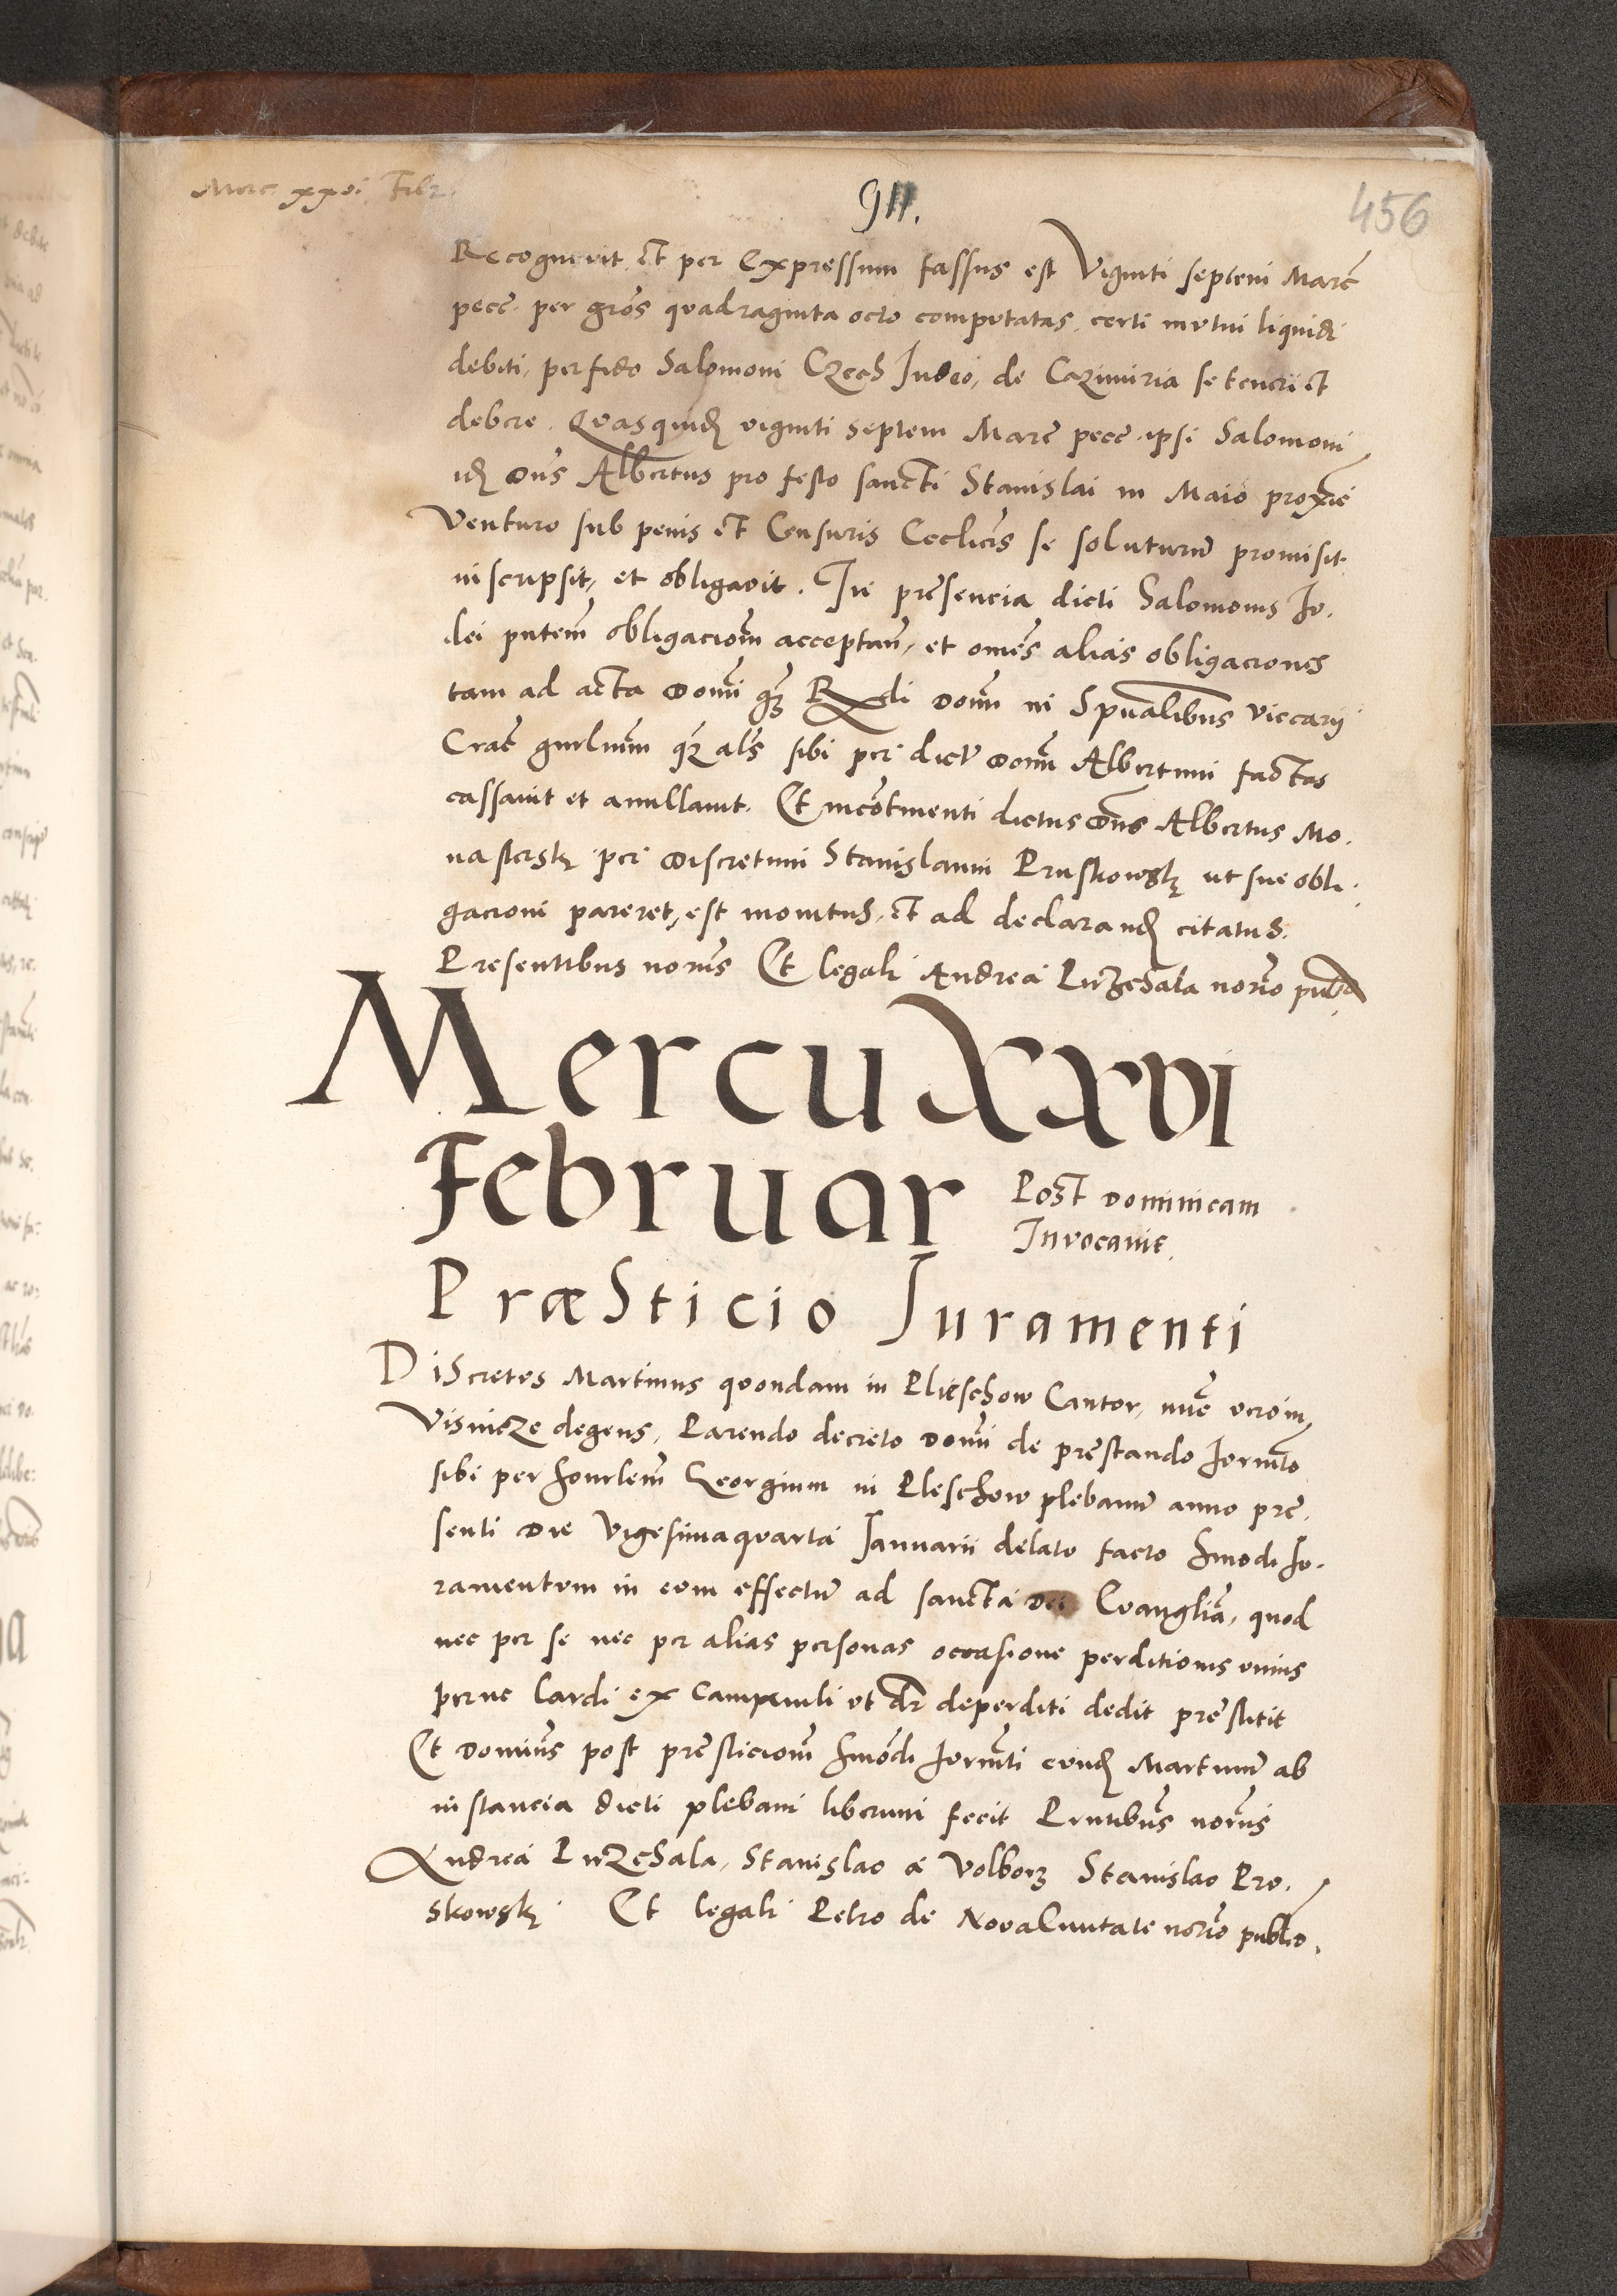 Merc xxvi Febr.
911.
456
Recognovit et per Expressum fassus est Viginti septem Marc̄
pecc̄. per gros̄ quadraginta octo computatas, certi mutui liquidi
debiti, perfido Salomoni Czech Iudeo, de Cazimiria se teneri et
debere. Quasquid̄ viginti septem Marc̄ pecc̄ ipsi Salomoni
id̄ Dn̄s Albertus pro festo sancti Stanislai in Maio proxīe
Venturo sub penis et Censuris Ecclīcis se soluturū promisit
inscripsit, et obligavit. In presencia dicti Salomonis Iu.
dei pn̄tem obligaciom̄ acceptan̄, et omēs alias obligaciones
tam ad acta Domī q̄ Rx̄di Domī in Spūalibus Viccarij
Crac̄ gn̄rlium q̄ als̄ sibi per dictū Dom̄ Albertum factas
cassavit et anullavit. Et incōtinenti dictus Dn̄s Albertus Mo.
nasterskj per Discretum Stanislaum Pruskowskj ut sue obli.
gacioni pareret, est monitus, et ad declarand̄ citatus.
Presentibus norīis Et legali Andrea Przechala norīo publ̄
Mercu XXVI
Februar
Post dominicam
Invocavit.
Præsticio Iuramenti
Discretus Martinus quondam in Plieschow Cantor, nūc vero in
Visnicze degens, Parendo decreto Domī de prestando Iurm̄to
sibi per honrlem̄ Georgium in Pleschow plebanū anno pre.
senti Die Vigesimaquarta Ianuarii delato facto hmōdi Iu.
ramentum in eum effectū ad sancta Dei Evanglīa, quod
nec per se nec per alias personas occasione perditionis unius
perne Lardi ex Campanili ut dr̄ deperditi dedit prestitit
Et dominūs post presticiom̄ hmōdi Iurm̄ti eund̄ Martinū ab
instancia dicti plebani liberum fecit Prn̄tibus norīis
Andrea Przechala, Stanislao a Volborz Stanislao Pru.
skowskj Et legali Petro de Nova Civitate norīo publico.